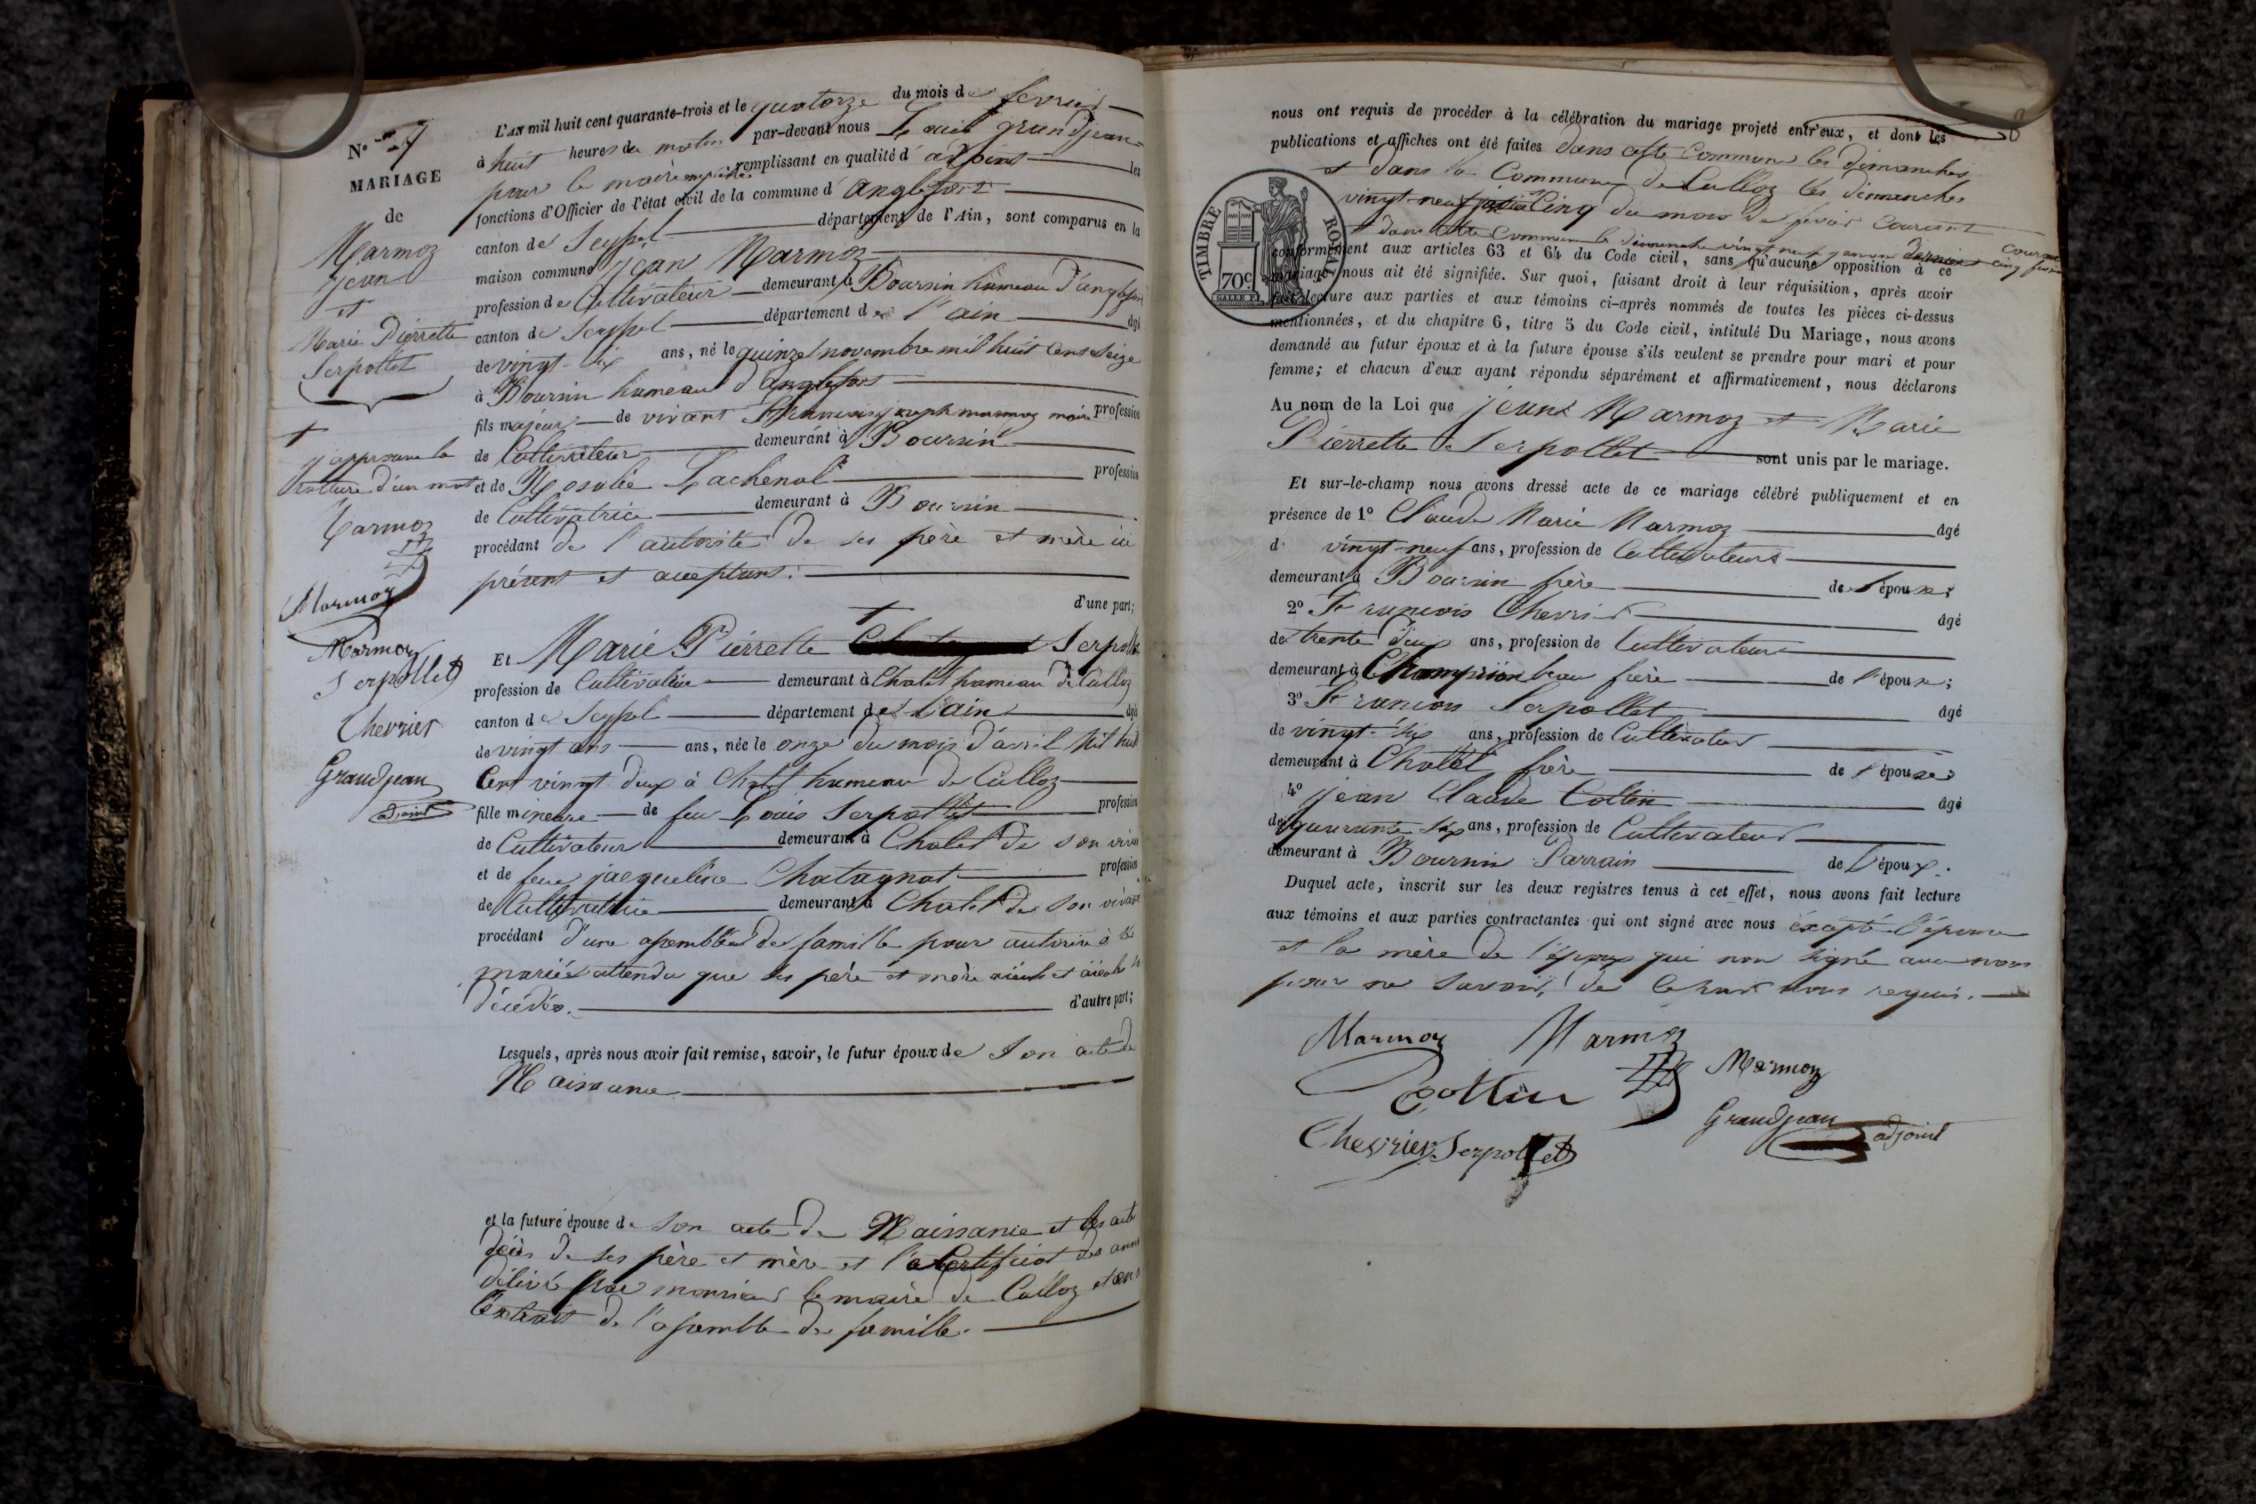 N° 7
MARIAGE
de
Marmoz
jean
et
Marie Pierrette
Serpollet
+
j'approuve la
rature d'un mot
Marmoz
Marmoz
Marmoz
Serpollet
Chevrier
Grandjean
adjoint
L'AN mil huit cent quarante-trois et le quatorze du mois de fevrier
à huit heures du matin par-devant nous Louis grandjean
pour le maire remplissant en qualité d' adjoint les
fonctions d'Officier de l'état civil de la commune d' anglefort
canton de Seyssel département de l'Ain, sont comparus en la
maison commune jean Marmoz
profession de Cultivateur demeurant à Boursin hameau d'anglefort
canton de Seyssel département de l'ain âgé
de vingt-six ans, né le quinze novembre mil huit cent seize
à Boursin hameau d'anglefort
fils majeur de vivant françois joseph marmoz profession
de Cultivateur demeurant à Boursin
et de Rosalie Lachenal profession
de Cultivatrice demeurant à Boursin
procédant de l'autorité de ses père et mère ici
présent et acceptant.
d'une part;
+
Et Marie Pierrette Serpollet
profession de Cultivatrice demeurant à Chatel hameau de Culloz
canton de Seyssel département de l'ain âgée
de vingt ans ans, née le onze du mois d'avril Mil huit
Cent vingt deux à Chatel hameau de Culloz
fille mineure de feu Louis Serpollet profession
de Cultivateur demeurant à Chatel de son vivant
et de feue jacqueline Chatagnat profession
de Cultivatrice demeurant à Chatel de son vivant
procédant d'une assemblée de famille pour autorisé à se
mariée attendu que ses père et mère aieul et aieule
décédés. d'autre part;
Lesquels, après nous avoir fait remise, savoir, le futur époux de Son acte de
Naissance
et la future épouse de Son acte de Naissance et les acte
décès de ses père et mère et le Certificat des
délivré par monsieur le maire de Culloz et
l'extrait de l'assemblé de famille.
8
nous ont requis de procéder à la célébration du mariage projeté entr'eux, et dont les
publications et affiches ont été faites dans cette Commune les dimanches
et dans la Commune de Culloz les dimanches
vingt-neuf Cinq du mois de fevrier courant
dans cette Commune le dimanche vingt neuf janvier dernier et cinq courant
TIMBRE ROYAL
70 c.
conformément aux articles 63 et 64 du Code civil, sans qu'aucune opposition à ce
mariage nous ait été signifiée. Sur quoi, faisant droit à leur réquisition, après avoir
fait lecture aux parties et aux témoins ci-après nommés de toutes les pièces ci-dessus
mentionnées, et du chapitre 6, titre 5 du Code civil, intitulé Du Mariage, nous avons
demandé au futur époux et à la future épouse s'ils veulent se prendre pour mari et pour
femme; et chacun d'eux ayant répondu séparément et affirmativement, nous déclarons
Au nom de la Loi que jean Marmoz et Marie
Pierrette Serpollet sont unis par le mariage.
Et sur-le-champ nous avons dressé acte de ce mariage célébré publiquement et en
présence de 1° Claude Marie Marmoz âgé
d. vingt-neuf ans, profession de Cultivateurs
demeurant à Boursin frère de l'époux;
2° François Chevrier âgé
de trente deux ans, profession de Cultivateur
demeurant à Champrion beau frère de l'époux;
3° François Serpollet âgé
de vingt-six ans, profession de Cultivateur
demeurant à Chatel frère de l'épouse;
4° jean Claude Collin âgé
de quarante six ans, profession de Cultivateur
demeurant à Boursin Parrain de l'époux.
Duquel acte, inscrit sur les deux registres tenus à cet effet, nous avons fait lecture
aux témoins et aux parties contractantes qui ont signé avec nous éxcepté l'épouse
et la mère de l'époux qui non signé avec nous
pour ne savoir, de ce faire requis.
Marmoz Marmoz Marmoz
Collin
Grandjean adjoint
Chevrier Serpollet